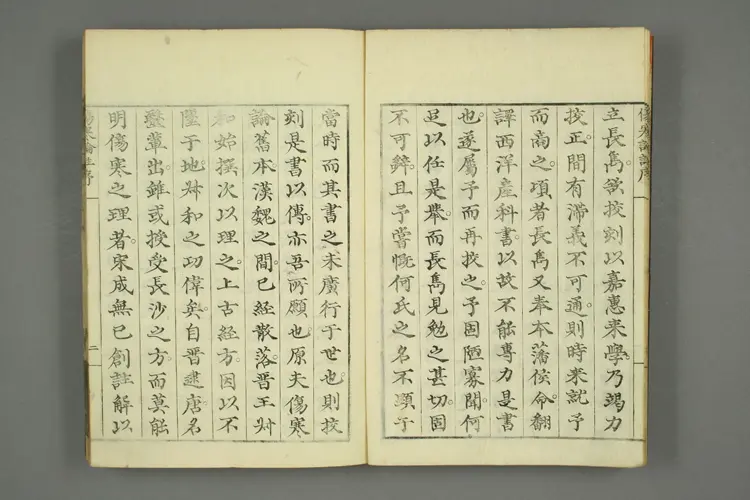 傷寒論註序
立長雋欲挍刻以嘉惠來學乃竭力
挍正間有滯義不可通則時來就予
而商之項者長雋又奉本藩侯命翻
譯西洋產科書以故不能專力是書
也遂屬予而再挍之予固陋寡聞何
足以任是舉而長雋見勉之甚切固
不可辭且予嘗慨何氏之名不顯于
當時而其書之未廣行于世也則挍
刻是書以傳亦吾所願也原夫傷寒
論舊本漢魏之間已經散落晋王叔
和始撰次以理之上古經方因以不
墜于地叔和之功偉矣自晋逮唐名
醫輩出雖或授受長沙之方而莫能
明傷寒之理者宋成無已創註解以
二